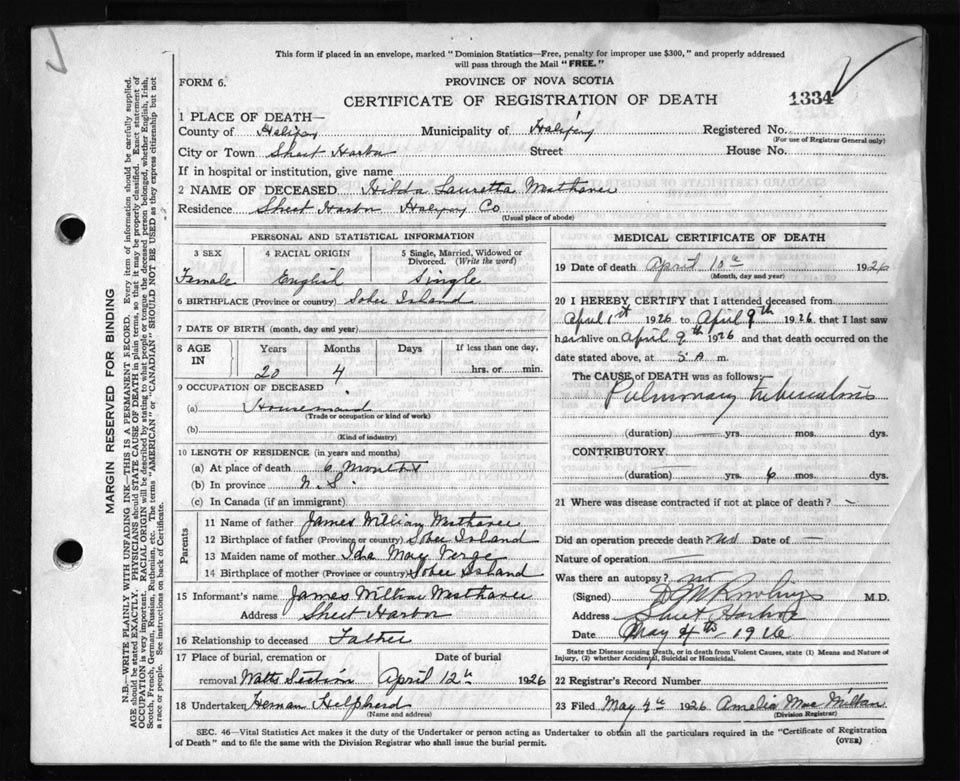 This form if placed in an envelope, marked "Dominion Statistics—Free, penalty for improper use $300," and properly addressed
will pass through the Mail "FREE."
FORM 6.
PROVINCE OF NOVA SCOTIA
CERTIFICATE OF REGISTRATION OF DEATH
1334
1 PLACE OF DEATH—
County of Halifax Municipality of Halifax Registered No.
(For use of Registrar General only)
City or Town Sheet Harbor Street House No.
If in hospital or institution, give name
2 NAME OF DECEASED Hilda Lauretta
Residence Sheet Harbor Halifax Co
(Usual place of abode)
PERSONAL AND STATISTICAL INFORMATION
3 SEX 4 RACIAL ORIGIN 5 Single, Married, Widowed or Divorced. (Write the word)
Female English Single
6 BIRTHPLACE (Province or country) Sober Island
7 DATE OF BIRTH (month, day and year)
8 AGE IN Years Months Days If less than one day,
20 4 hrs. or min.
9 OCCUPATION OF DECEASED
(a) Housemaid
(Trade or occupation or kind of work)
(b)
(Kind of industry)
10 LENGTH OF RESIDENCE (in years and months)
(a) At place of death 6 Months
(b) In province N.S.
(c) In Canada (if an immigrant)
Parents
11 Name of father James William
12 Birthplace of father (Province or country) Sober Island
13 Maiden name of mother Ida May Verge
14 Birthplace of mother (Province or country) Sober Island
15 Informant's name James William
Address Sheet Harbor
16 Relationship to deceased Father
17 Place of burial, cremation or Date of burial
removal Watts Section April 12th 1926
18 Undertaker
(Name and address)
MEDICAL CERTIFICATE OF DEATH
19 Date of death April 10th 1926
(Month, day and year)
20 I HEREBY CERTIFY that I attended deceased from
April 1st 1926 to April 9th 1926, that I last saw
her alive on April 9th 1926 and that death occurred on the
date stated above, at 5 A m.
The CAUSE of DEATH was as follows:—
Pulmonary tuberculosis
(duration) yrs. mos. dys.
CONTRIBUTORY.
(duration) yrs. 6 mos. dys.
21 Where was disease contracted if not at place of death? —
Did an operation precede death? no Date of —
Nature of operation —
Was there an autopsy? no
(Signed) M.D.
Address Sheet Harbor
Date May 4th 1926
State the Disease causing Death, or in death from Violent Causes, state (1) Means and Nature of
Injury, (2) whether Accidental, Suicidal or Homicidal.
22 Registrar's Record Number
23 Filed May 4th 1926 Amelia MacMillan
(Division Registrar)
SEC. 46—Vital Statistics Act makes it the duty of the Undertaker or person acting as Undertaker to obtain all the particulars required in the "Certificate of Registration
of Death" and to file the same with the Division Registrar who shall issue the burial permit.
(OVER)
MARGIN RESERVED FOR BINDING
N.B.—WRITE PLAINLY WITH UNFADING INK—THIS IS A PERMANENT RECORD. Every item of information should be carefully supplied.
AGE should be stated EXACTLY. PHYSICIANS should STATE CAUSE OF DEATH in plain terms, so that it may be properly classified. Exact statement of
OCCUPATION is very important. RACIAL ORIGIN will be described by stating to what people or tongue the deceased person belonged, whether English, Irish,
Scotch, French, German, Russian, Ruthenian, etc. The terms "AMERICAN" or "CANADIAN" SHOULD NOT BE USED as they express citizenship but not
a race or people. See instructions on back of Certificate.